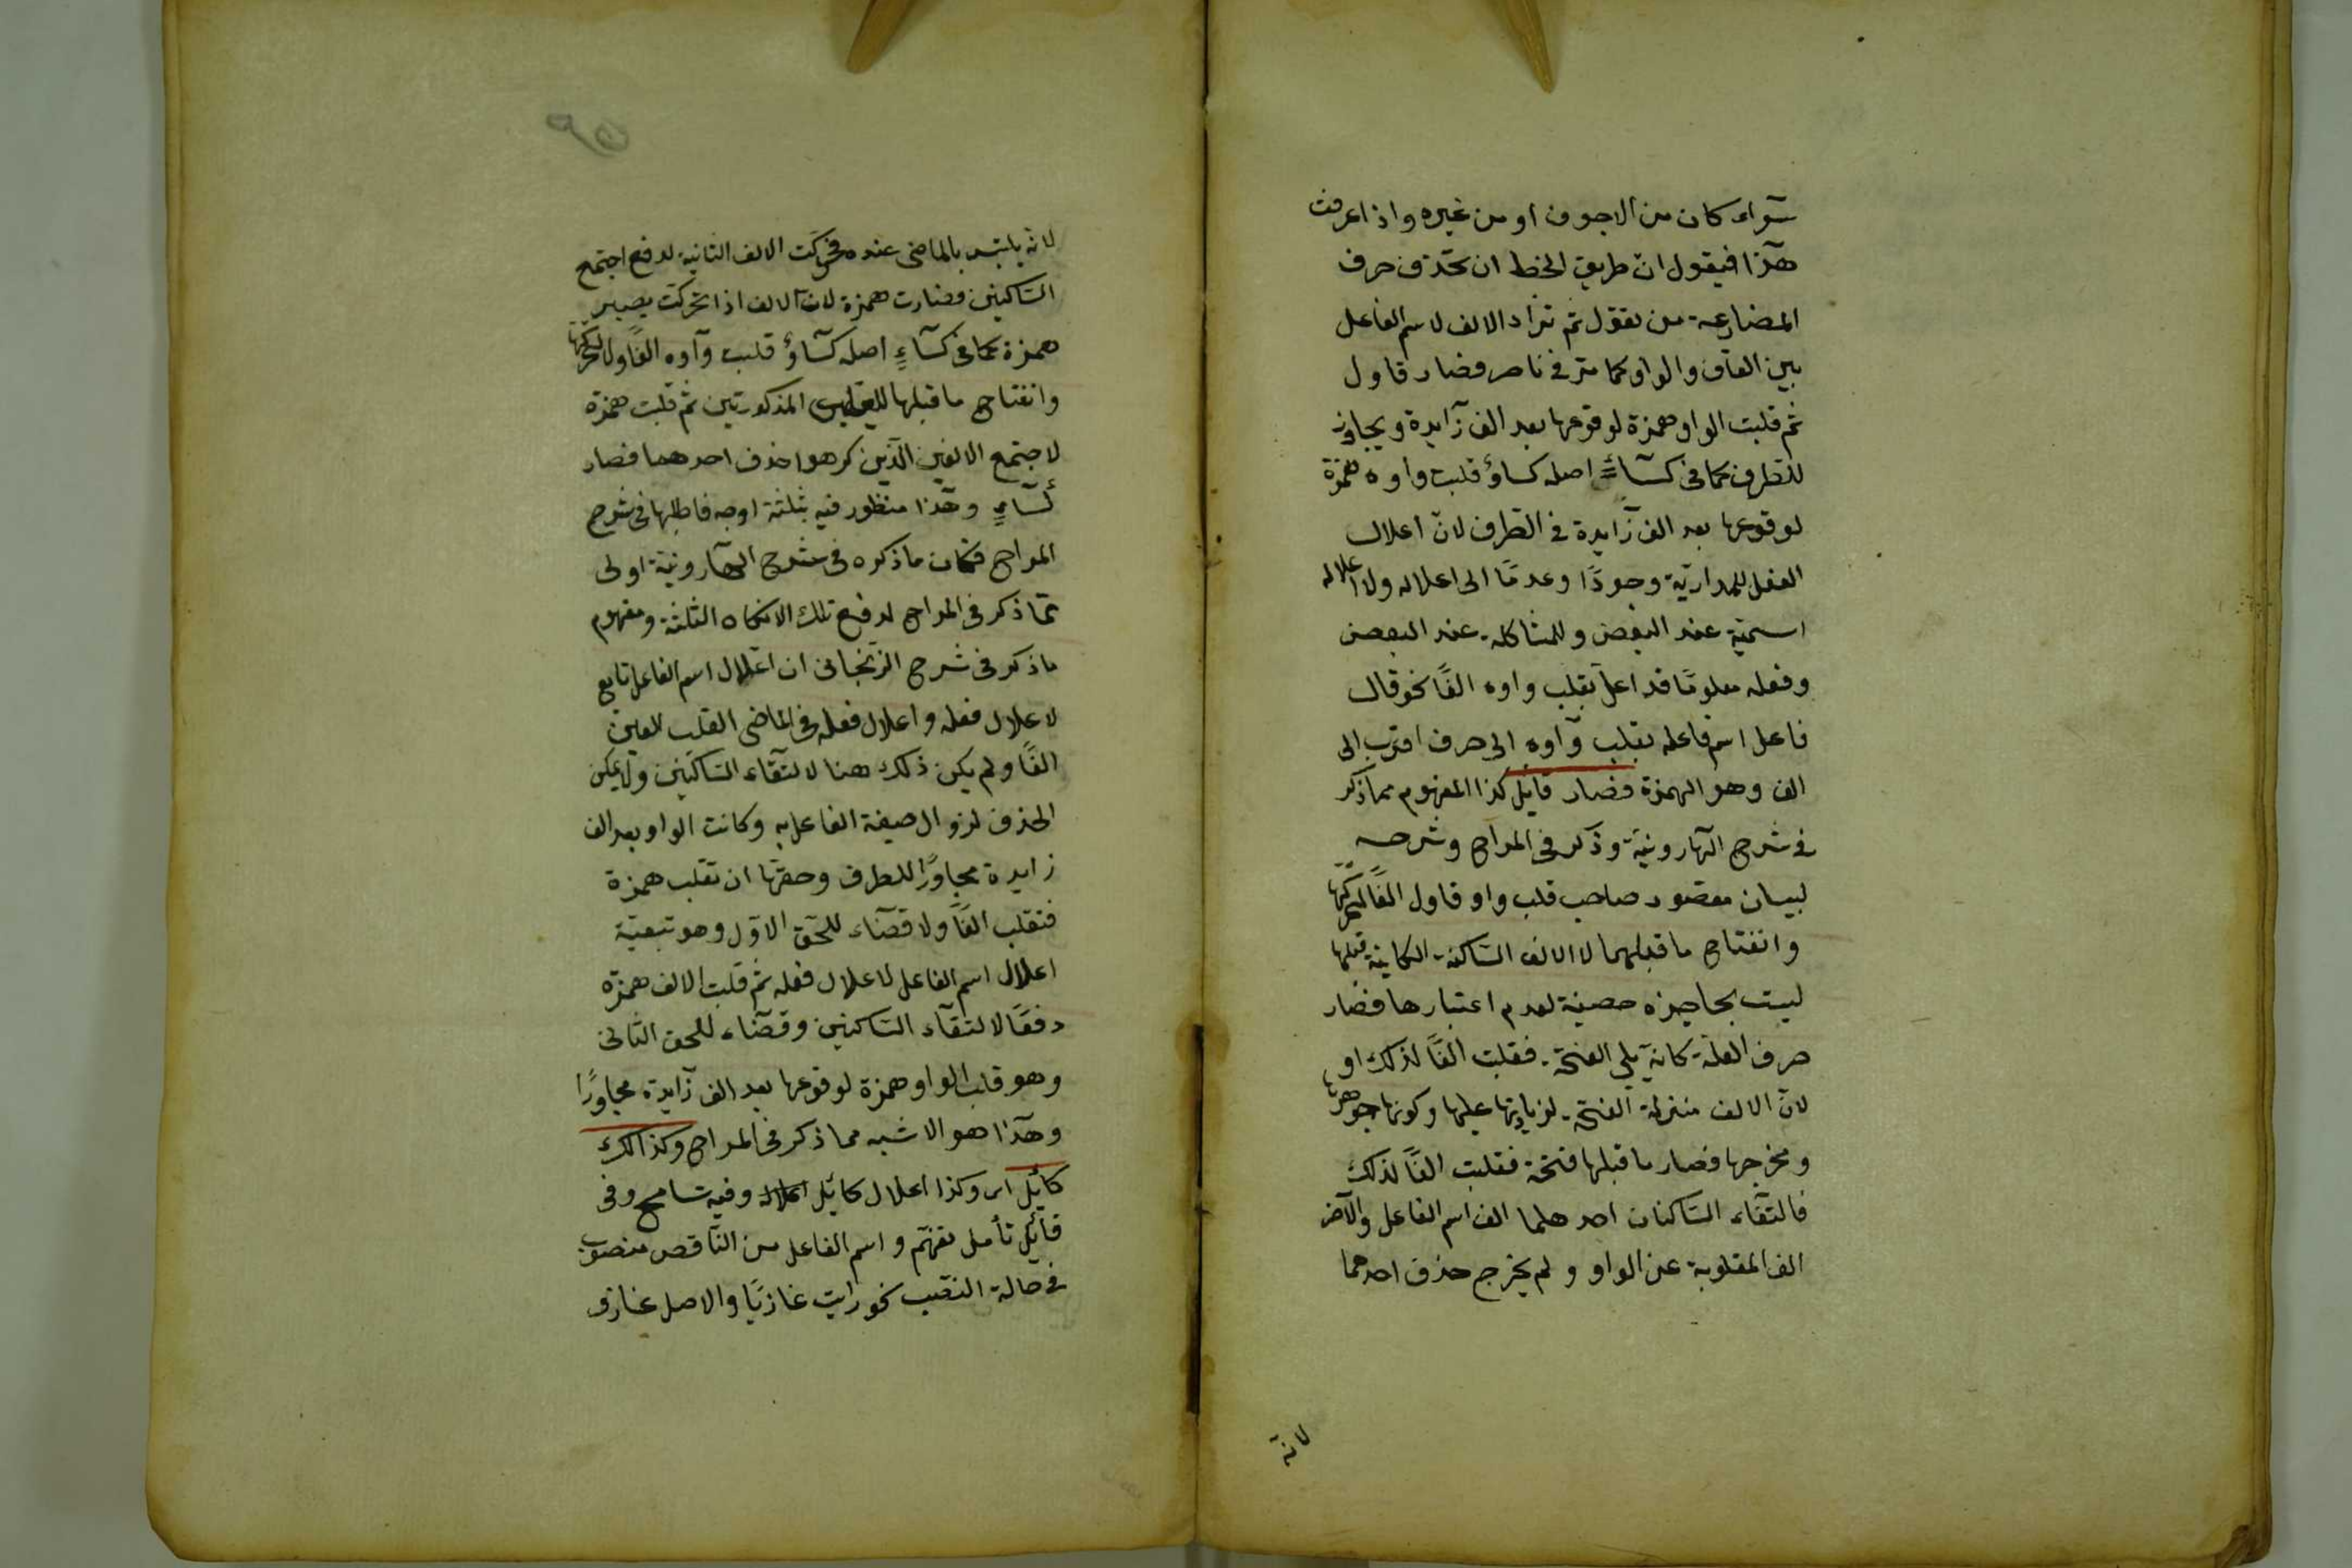 سوآء كان من الاجوف او من غيره واذا عرفت
هذا فيقول انّ طريق الخط ان تحذف حرف
المضارعة من يقول ثم تزاد الالف لاسم الفاعل
بين القاف والواو كما مرّ في ناصر فصار قاول
ثم قلبت الواو همزة لوقوعها بعد الف زآيدة
للطرف كما في كسآء اصله كساؤ قلبت واوه همزة
لوقوعها بعد الف زآيدة في الطرف لانّ اعلال
الفعل للمداريّة وجودًا وعدمًا الى اعلاله ولا اعلاله
اسميّة عند البعض وللمشاكلة عند البعض
وفعله معلومًا قد اعلّ بقلب واوه الفًا نحو قال
فاعل اسم فاعله بقلب وآوه الى حرف اقرب الى
الف وهو الهمزة فصار قايل كذا المفهوم مما ذكر
في شرح الهارونيّة وذكر في المراح وشرحه
لبيان مقصود صاحب قلب واو قاول الفًا لتحرّكها
وانفتاح ما قبلهما لا الالف الساكنة الكاينة قبلها
ليست بحاجزه حصينة لعدم اعتبارها فصار
حرف العلّة كانه يلي الفتحة فقلبت الفًا لذلك او
لانّ الالف منزلة الفتحة لزيادتها عليها وكونها جوهرها
ومخرجها فصار ما قبلها فتحة فقلبت الفًا لذلك
فالتقآء الساكنان احدهما الف اسم الفاعل والآخر
الف المقلوبة عن الواو ولم يخرج حذف احدهما
لانه
لانه يلتبس بالماضى عنده فحركت الالف الثانية لدفع اجتمع
الساكنين فصارت همزة لانّ الالف اذا تحركت يصير
همزة كما في كسآءٍ اصله كسآوٌ قلبت وآوه الفًا ولا لتحركها
وانفتاح ما قبلها المذكورتين ثم قلبت همزة
لاجتمع الالفين الذين كرهوا حذف احدهما فصار
كسآء وهذا منظور فيه بثلثة اوجه فاطلبها في شرح
المراح فكان ما ذكره في شرح الهارونيّة اولى
ممّا ذكر في المراح لدفع تلك الثلثة ومفهوم
ما ذكر في شرح الزنجانى ان اعلال اسم الفاعل تابع
لاعلال فعله واعلال فعله في الماضى القلب للعين
الفًا ولم يكن ذلك هنا لالتقآء الساكنين ولا يمكن
الحذف لزوال صيغة الفاعل به وكانت الواو بعد الف
زايدة مجاورًا للطرف وحقها ان تقلب همزة
فتقلب الفًا ولا قضآء للحق الاوّل وهو تبعيّة
اعلال اسم الفاعل لاعلال فعله ثم قلبت الالف همزه
دفعًا لالتقآء الساكنين وقضآء للحق الثانى
وهو قلب الواو همزة لوقوعها بعد الف زآيدة مجاورًا
وهذا هو الاشبه مما ذكر في المراح وكذالك
كايل اى وكذا اعلال كايل اعلال وفيه تسامح وفى
قايل تأمل تفهّم واسم الفاعل من الناقص منصوب
في حالة النصب نحو رايت غازيًا والاصل غازو